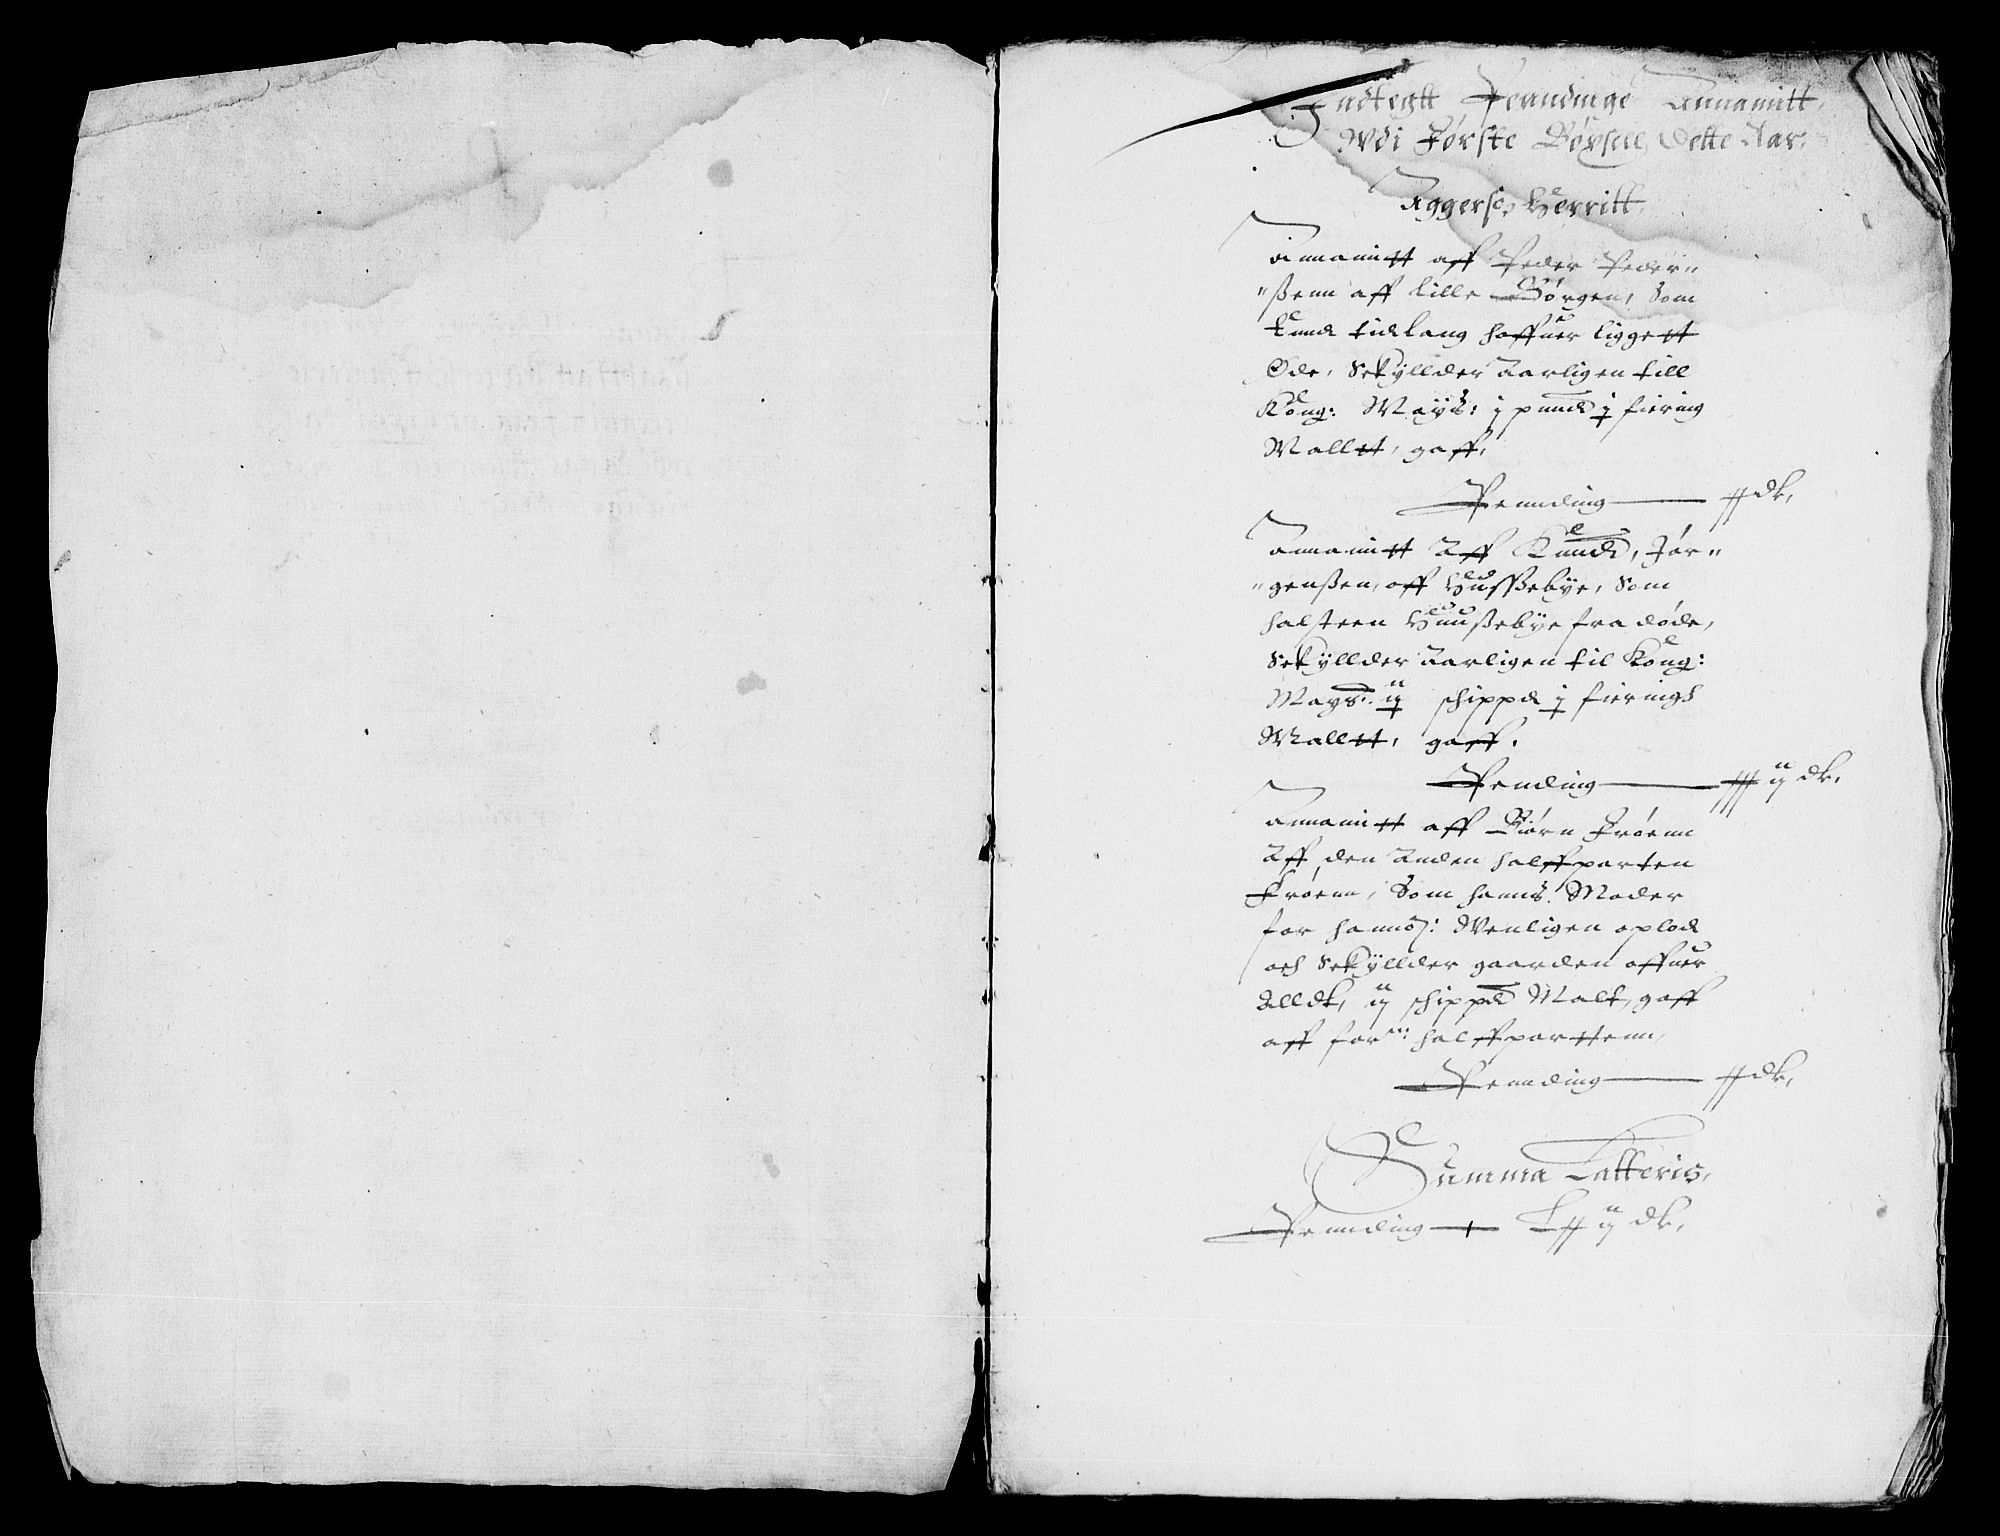 Indtegtt Penndinge Annamitt,
Wdi Første Bøxsell, Dette Aar.
Aggers, Herritt,
Annamitt aff Peder Peder„
„ßenn aff Lille Børgen, som
enndt tidlang haffuer liggett
Øde, Skyllder Aarligen till
Kong: Mays: j pundt j fiering
Malltt, gaff,
Pennding dlr,
Annamitt Aff Knud, Jør„
„genßen, aff Hussßebye, som
halsteen Huußebye fra døde,
Skyllder Aarligen til Kong:
Mays: ij schippd j fieringh
Malltt, gaff.
Pending ij dlr,
Annamitt aff Biørn Frøenn
Aff den Anden halffparten
Frøenn, som hanns Moder
for hannom: Wenligen oplod
och Skyllder gaarden offuer
Alldt, ij schippd Malt, gaff
aff for:ne halffparttenn,
Pennding dlr,
Summa Latteris,
Pennding ij dlr,